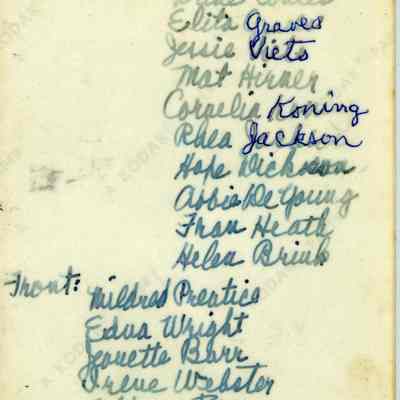 Elita Graves
Jessie Viets
Mat Hirner
Cornelia Koning
Rhea Jackson
Hope Dickson
Abbie De Young
Fran Heath
Helen Brink
Front: Mildred Prentice
Edna Wright
Jeanette Barr
Irene Webster